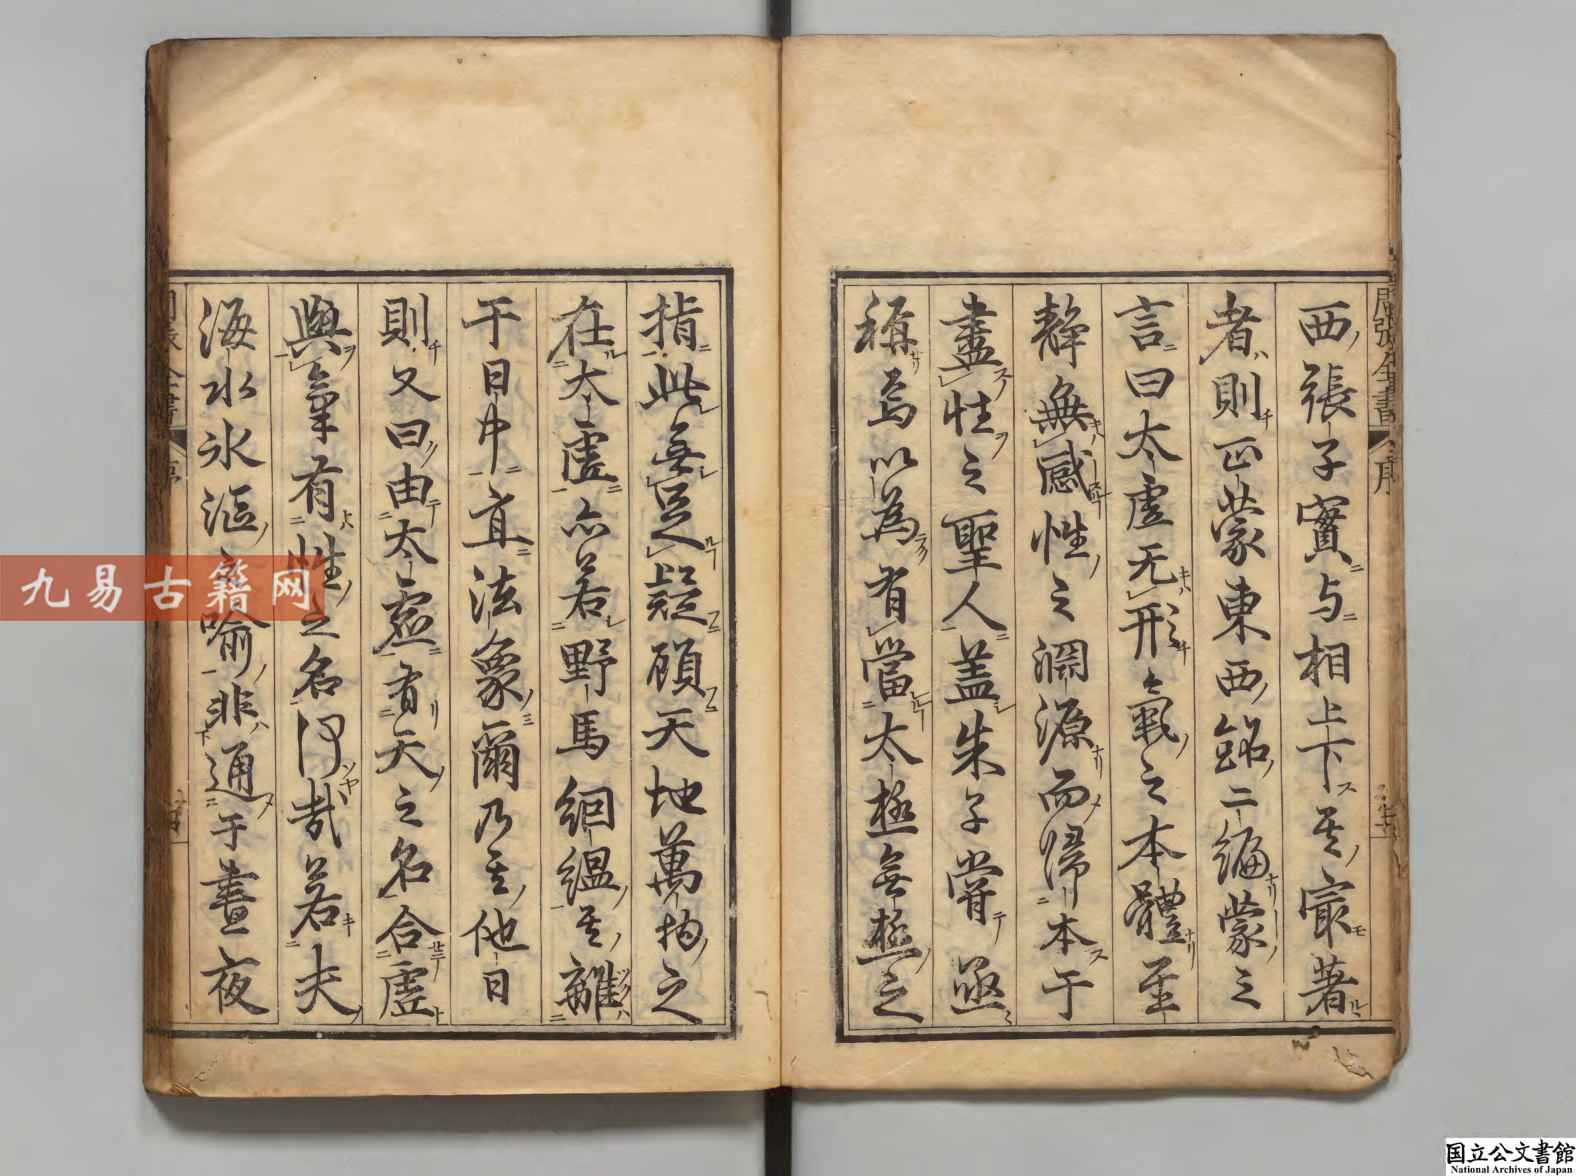 西張子實与相上下其最著
者則正蒙東西銘二編蒙之
言曰太虛无形氣之本體至
靜無感性之淵源而歸本于
盡性之聖人盖朱子嘗亟
稱焉以為有當太極無極之
指此無足疑顧天地萬物之
在太虛亦若野馬絪縕其離
于日中直法象爾乃其他日
則又曰由太虛有天之名合虛
與氣有性之名何哉若夫
海水氷漚之喻非通于晝夜
周張全書
序
九易古籍网
国立公文書館
National Archives of Japan